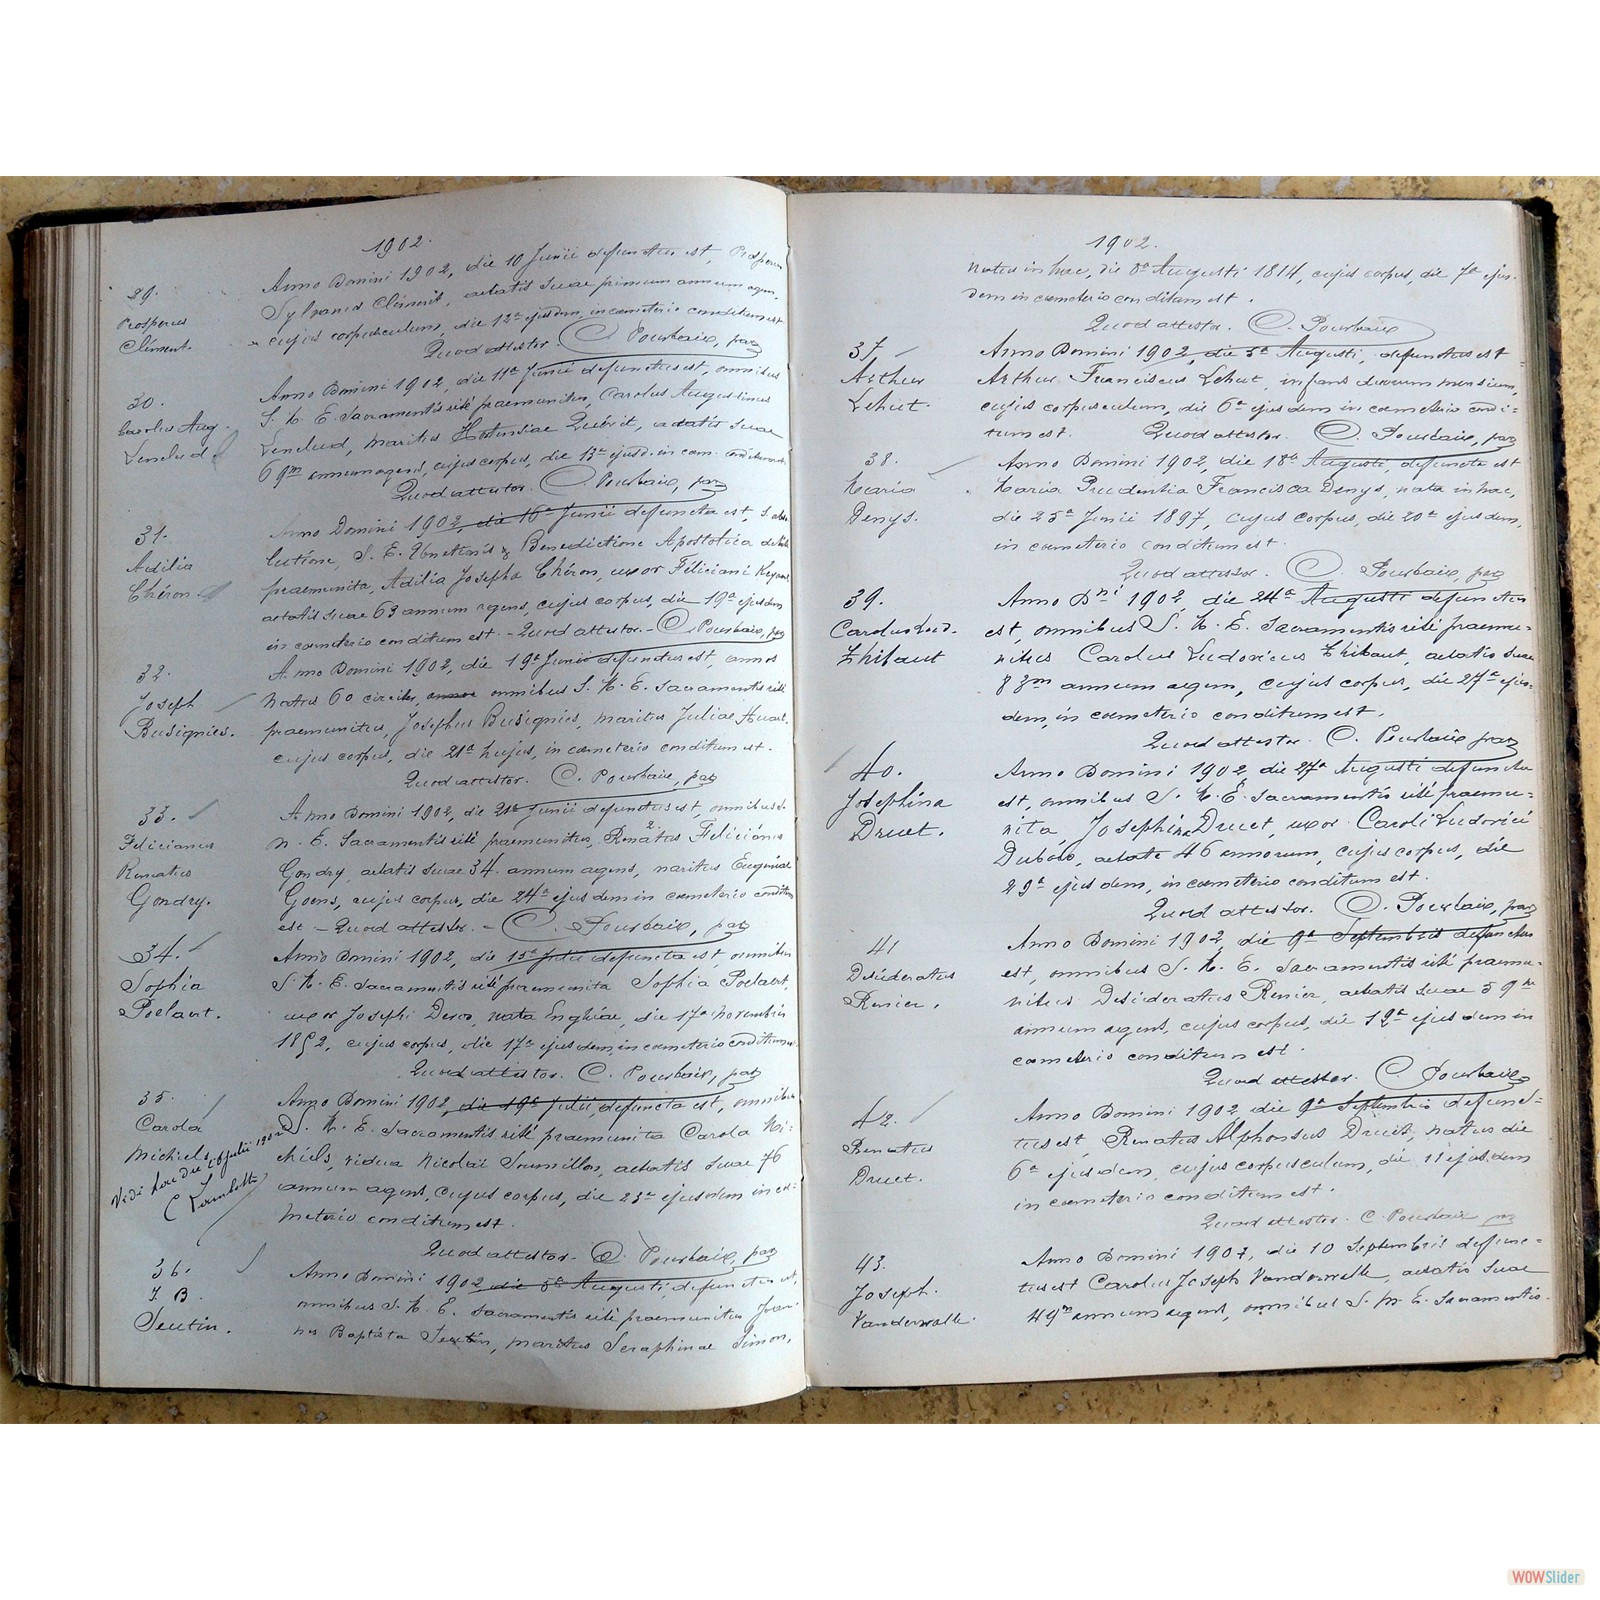 1902.
29.
Prosperus
Clément.
Anno Domini 1902, die 10 Junii defunctus est, Prosperus
Sylvanus Clément, aetatis suae primum annum agens,
cujus corpusculum, die 12a ejusdem, in coemeterio conditum est
Quod attestor. C. Pourbaix, par
30.
Carolus Aug.
Lenclud
Anno Domini 1902, die 11a Junii defunctus est, omnibus
S. M. E. Sacramentis rité praemunitus, Carolus Augustinus
Lenclud, maritus Hortensiae Quévit, aetatis suae
69m annum agens, cujus corpus, die 13a ejusd. in coem. conditum est
Quod attestor. C. Pourbaix, par
31.
Adilia
Chéron
Anno Domini 1902, die 16a Junii defuncta est, S. abso
lutione, S. E. Unctionis & Benedictione Apostolica debite
praemunita, Adilia Josepha Chéron, uxor Féliciani
aetatis suae 63 annum agens, cujus corpus, die 19a ejusdem
in coemeterio conditum est. - Quod attestor. - C. Pourbaix, par
32.
Joseph
Busignies.
Anno Domini 1902, die 19a Junii defunctus est, annos
natus 60 circiter, omnibus S. M. E. Sacramentis rité
praemunitus, Josephus Busignies, maritus Juliae Huart.
cujus corpus, die 21a hujus, in coemeterio conditum est.
Quod attestor. C. Pourbaix, par
33.
Felicianus
Renatus
Gondry.
Anno Domini 1902, die 21a Junii defunctus est, omnibus S.
M. E. Sacramentis rité praemunitus, Renatus 2 Félicianus
Gondry, aetatis suae 34. annum agens, maritus Eugeniae
Goens, cujus corpus, die 24a ejusdem in coemeterio conditum
est - Quod attestor. - C. Pourbaix, par
34.
Sophia
Poelaert.
Anno Domini 1902, die 15a Julii defuncta est, omnibus
S. M. E. Sacramentis rité praemunita Sophia Poelaert,
uxor Josephi Derco, nata Enghiae, die 17a Novembris
1852, cujus corpus, die 17a ejusdem, in coemeterio conditum est
Quod attestor. C. Pourbaix, par
35.
Carola
Michiels,
Vidi hac die 26 Julii 1902
Anno Domini 1902, die 19a Julii, defuncta est, omnibus
S. M. E. Sacramentis rité praemunita Carola Mi
chiels, vidua Nicolaï Sournillon, aetatis suae 76
annum agens, cujus corpus, die 23a ejusdem in coe-
meterio conditum est.
Quod attestor - C. Pourbaix, par
36.
J. B.
Seutin.
Anno Domini 1902 die 5a Augusti, defunctus est,
omnibus S. M. E. Sacramentis rité praemunitus Joan-
nes Baptista Seutin, maritus Seraphinae Simon,
1902.
natus in hac, die 8a Augusti 1814, cujus corpus, die 7a ejus-
dem in coemeterio conditum est.
Quod attestor. C. Pourbaix
37
Arthur
Lehut.
Anno Domini 1902, die 5a Augusti, defunctus est
Arthur Franciscus Lehut, infans duorum mensium,
cujus corpusculum, die 6a ejusdem in coemeterio condi-
tum est. Quod attestor. C. Pourbaix, par
38.
Maria
Denys.
Anno Domini 1902, die 18a Augusti, defuncta est
Maria Prudentia Francisca Denys, nata in hac,
die 25a Junii 1897, cujus corpus, die 20a ejusdem,
in coemeterio conditum est.
Quod attestor. C. Pourbaix, par
39.
Carolus Lud.
Thibaut
Anno Dni 1902, die 24a Augusti defunctus
est, omnibus S. M. E. Sacramentis rité praemu-
nitus Carolus Ludovicus Thibaut, aetatis suae
83m annum agens, cujus corpus, die 27a ejus-
dem, in coemeterio conditum est.
Quod attestor. C. Pourbaix par
40.
Josephina
Druet.
Anno Domini 1902, die 27a Augusti defuncta
est, omnibus S. M. E. Sacramentis rité praemu-
nita, Josephina Druet, uxor Caroli Ludovici
Dubois, aetate 46 annorum, cujus corpus, die
29a ejusdem, in coemeterio conditum est.
Quod attestor. C. Pourbaix, par
41
Désidératus
Renier.
Anno Domini 1902, die 9a Septembris defunctus
est, omnibus S. M. E. Sacramentis rité praemu-
nitus Desideratus Renier, aetatis suae 59m
annum agens, cujus corpus, die 12a ejusdem in
coemeterio conditum est.
Quod attestor. C. Pourbaix
42.
Renatus
Druet.
Anno Domini 1902, die 9a Septembris defunc-
tus est, Renatus Alphonsus Druet, natus die
6a ejusdem, cujus corpusculum, die 11 ejusdem
in coemeterio conditum est.
Quod attestor. C. Pourbaix par
43.
Joseph.
Vanderwalle.
Anno Domini 1902, die 10 Septembris defunc-
tus est Carolus Joseph Vanderwalle, aetatis suae
49m annum agens, omnibus S. M. E. Sacramentis
WOWSlider